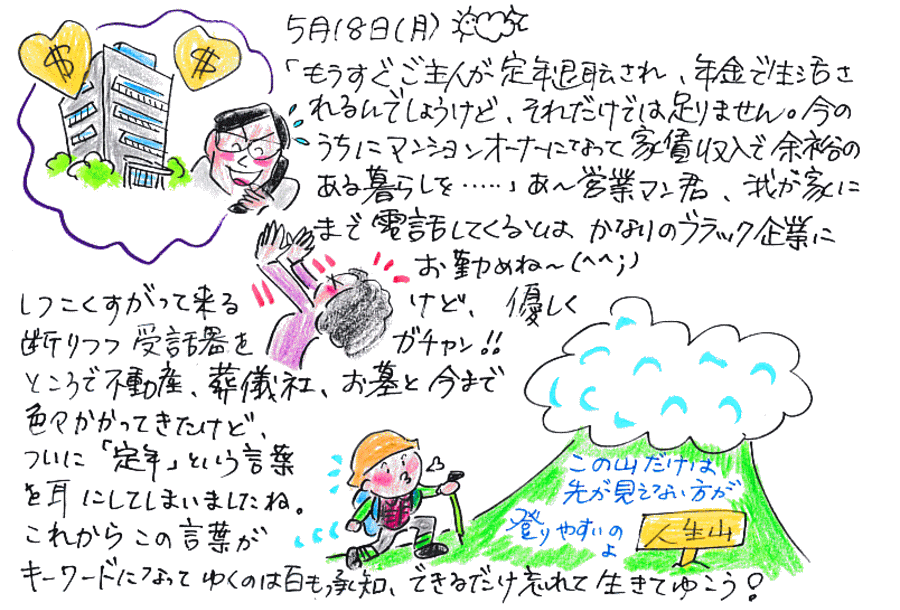 5月18日(月)
「もうすぐご主人が定年退職され、年金で生活さ
れるんでしょうけど、それだけでは足りません。今の
うちにマンションオーナーになって家賃収入で余裕の
ある暮らしを……」あ〜営業マン君、我が家に
まで電話してくるとは、かなりのブラック企業に
お勤めね〜(^^;)
しつこくすがって来る けど、優しく
断りつつ受話器を ガチャン!!
ところで不動産、葬儀社、お墓と今まで
色々かかってきたけど、
ついに「定年」という言葉
を耳にしてしまいましたね。
これからこの言葉が
キーワードになってゆくのは百も承知、できるだけ忘れて生きてゆこう?
$
$
この山だけは
先が見えない方が
登りやすいの
よ
人生山